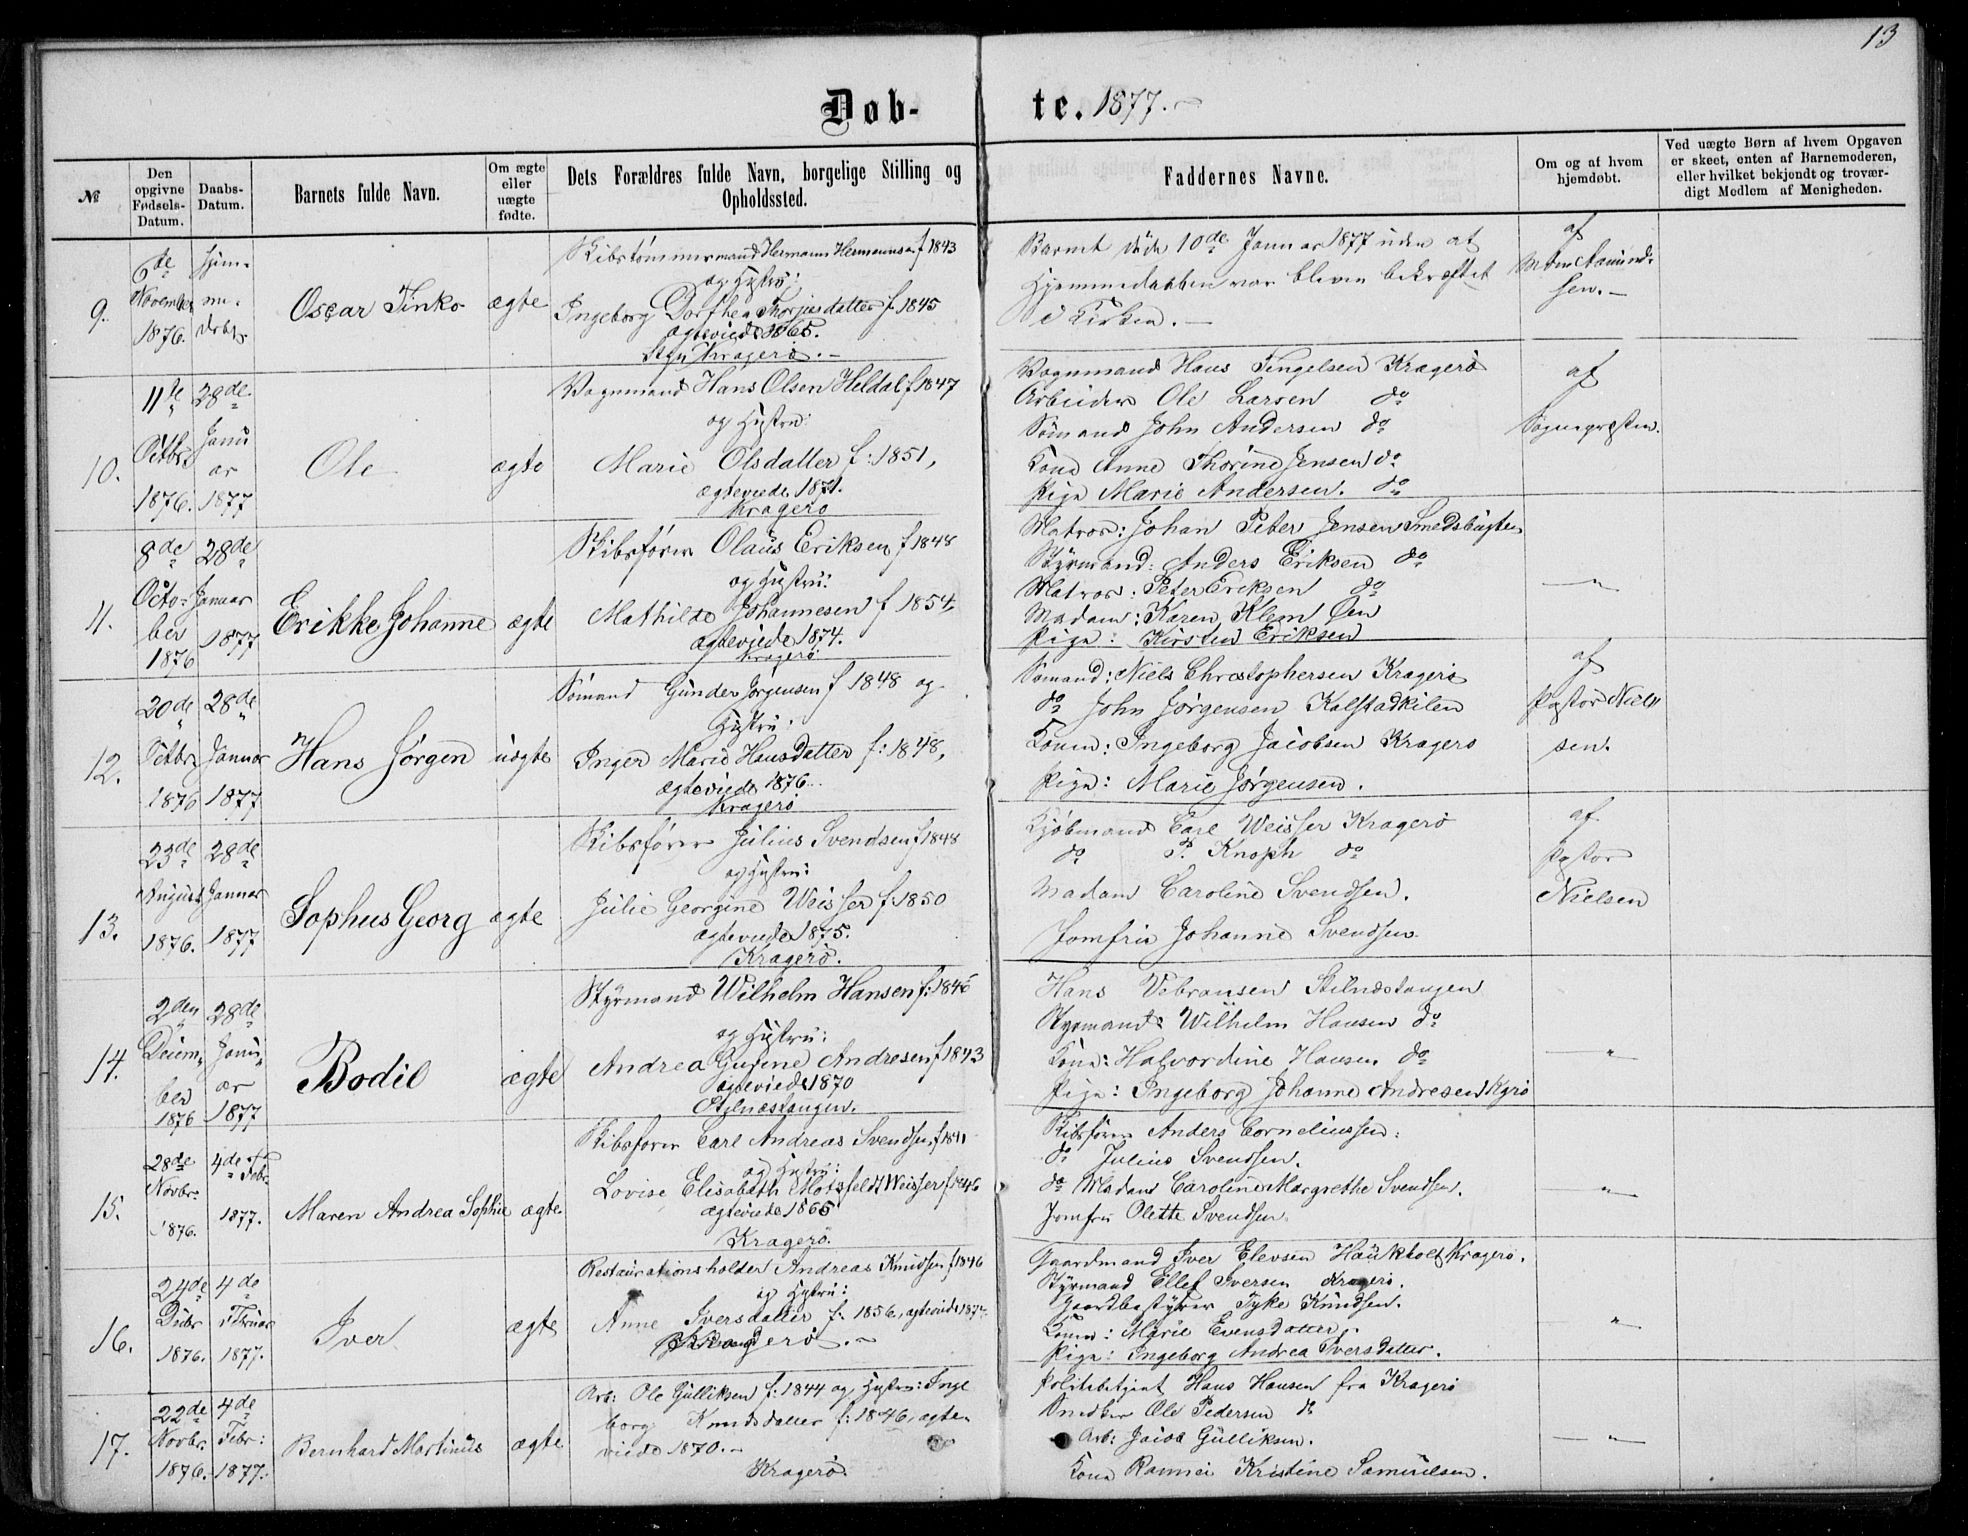 13
Døb-te. 1877.
№
Den opgivne Fødsels-Datum.
Daabs-Datum.
Barnets fulde Navn.
Om ægte eller uægte fødte.
Dets Forældres fulde Navn, borgelige Stilling og Opholdssted.
Faddernes Navne.
Om og af hvem hjemdøbt.
Ved uægte Børn af hvem Opgaven er skeet, enten af Barnemoderen, eller hvilket bekjendt og troværdigt Medlem af Menigheden.
9.
6te November 1876.
hjemmedøbt
Oscar Tinko
ægte
Skibstømmermand Hermann Hermansen f 1843
og Hustru:
Ingeborg Dorthea Thorjusdatter f. 1845
ægteviede 1865.
Kragerø.
Barnet døde 10de Januar 1877 uden at
Hjemmedaaben var bleven bekræftet
i Kirken.
af
Amundsen.
10.
11te Octbr 1876.
28de Januar 1877
Ole
ægte
Vognmand Hans Olsen Heldal f 1847
og Hustru:
Marie Olsdatter f: 1851,
ægteviede 1871.
Kragerø
Vognmand Hans Kragerø
Arbeider Ole Larsen do
Sömand John Andersen do
Kone Anne Thorine Jensen do
Pige Marie Andersen. do
af
Sognepresten.
11.
8de October 1876
28de Januar 1877
Erikke Johanne
ægte
Skibsfører Olaus Eriksen f 1848
og Hustru:
Mathilde Johannesen f 1854,
ægteviede 1874.
Kragerø
Matros: Johan Peter Jensen Smedsbugten
Styrmand: Anders Eriksen do
Matros: Peter Eriksen do
Madam: Karen Klem Øen
Pige: Kirsten Eriksen
"
12.
20de Octbr 1876
28de Januar 1877
Hans Jörgen
uægte
Sömand Gunder Jörgensen f 1848 og
Hustru:
Inger Marie Hansdatter f: 1848,
ægteviede 1876.
Kragerø
Sömand: Niels Christophersen Kragerø
do John Jörgensen Kalstadkilen
Konen: Ingeborg Jacobsen Kragerø
Pige: Marie Jörgensen.
af
Pastor Nielsen.
13.
23de August 1876.
28de Januar 1877
Sophus Georg
ægte
Skibsfører Julius Svendsen f 1848
og Hustru:
Julie Georgine Weisser f. 1850
ægteviede 1875.
Kragerø.
Kjöbmand Carl Weisser Kragerø
do P. Knoph do
Madam Caroline Svendsen.
Jomfru Johanne Svendsen
af
Pastor
Nielsen
14.
2den December 1876
28de Januar 1877
Bodil
ægte
Styrmand Wilhelm Hansen f: 1846
og Hustru:
Andrea Gurine Andresen f 1843
ægteviede 1870
Stilnæstangen.
Hans Vebransen Stilnæstangen
Styrmand: Wilhelm Hansen do
Kone: Halvordine Hansen do
Pige: Ingeborg Johanne Andresen Kgrø
"
15.
28de Novbr. 1876.
4de Febr. 1877.
Maren Andrea Sophie
ægte
Skibsfører Carl Andreas Svendsen f 1841
og Hustru:
Lovise Elisabeth Motzfeldt Weisser f 1846
ægteviede 1865
Kragerø.
Skibsfører Anders Corneliussen:
do Julius Svendsen.
do Madam Caroline Margrethe Svendsen.
Jomfru Olette Svendsen.
"
16.
24de Decbr 1876.
4de Februar 1877.
Iver
ægte
Restaurationsholder Andreas Knudsen f 1846
og Hustru:
Anne Iversdatter f: 1856, ægteviede
Kragerø.
Gaardmand Iver Elevsen Haukholt Kragerø.
Styrmand Ellef Iversen Kragerø.
Gaardbestyrer Tyke Knudsen.
Konen: Marie Evensdatter.
Pige: Ingeborg Andrea Iversdatter.
"
17.
22de Novbr. 1876.
4de Febr: 1877.
Bernhard Martinus
ægte
Arb: Ole Gulliksen f: 1844 og Hustru: Inge
borg Knudsdatter f: 1846, ægte
viede 1870.
Kragerø.
Politibetjent Hans Hansen fra Kragerø
Snedker Ole Pedersen do
Arb: Jacob Gulliksen.
Kone Kristine Samuelsen.
"